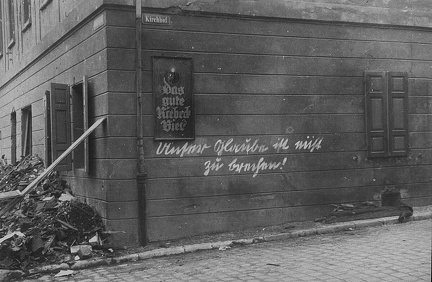 Kirchhof
Das
gute
Riebeck
Bier
Unser Glaube ist nicht
zu brechen!